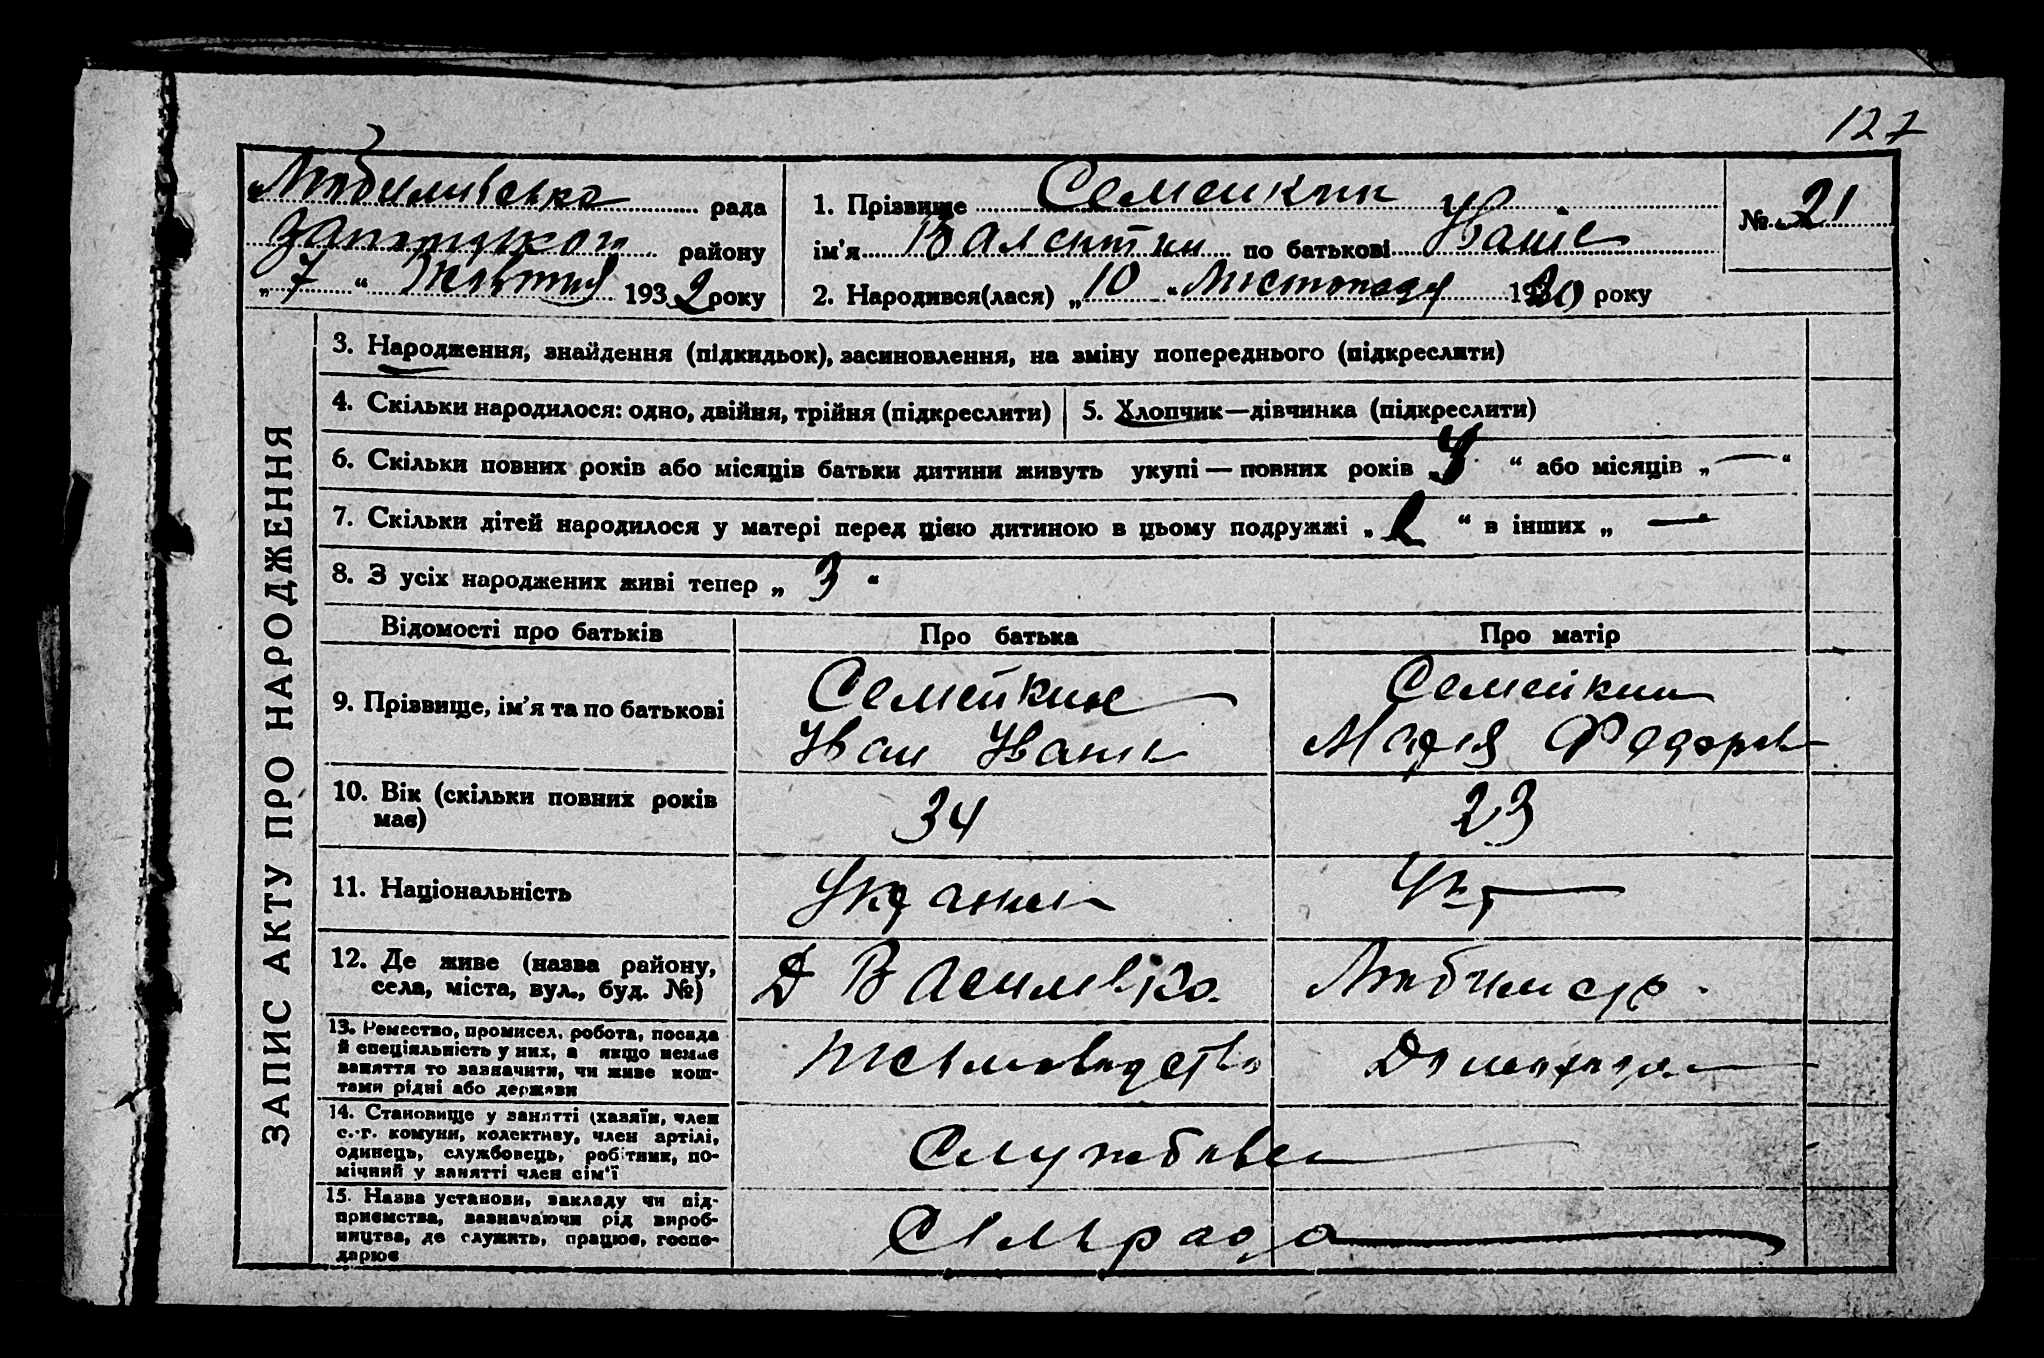 127
Любимівська рада
району
„ 7 “ Жовтня 1932 року
1. Прізвище Семейкин
ім'я Валентин по батькові Іванів
2. Народився(лася) „ 10 “ Листопада 1930 року
№ 21
ЗАПИС АКТУ ПРО НАРОДЖЕННЯ
3. Народження, знайдення (підкидьок), засиновлення, на зміну попереднього (підкреслити)
4. Скільки народилося: одно, двійня, трійня (підкреслити)
5. Хлопчик—дівчинка (підкреслити)
6. Скільки повних років або місяців батьки дитини живуть укупі — повних років „ “ або місяців „ — “
7. Скільки дітей народилося у матері перед цією дитиною в цьому подружжі „ 2 “ в інших „ — “
8. З усіх народжених живі тепер „ 3 “
Відомості про батьків
Про батька
Про матір
9. Прізвище, ім'я та по батькові
Семейкин
Іван Іванів
Семейкин
Марія Федорів
10. Вік (скільки повних років
має)
34
23
11. Національність
Україн
Укр —
12. Де живе (назва району,
села, міста, вул., буд. №)
Д Василівка
13. Ремество, промисел, робота, посада
й спеціяльність у них, а якщо немає
заняття то зазначити, чи живе кош-
тами рідні або держави
Письмоводство
Домогосп
14. Становище у занятті (хазяїн, член
с.-г. комуни, колективу, член артілі,
одинець, службовець, робітник, по-
мічний у занятті член сім'ї
Службовец
15. Назва установи, закладу чи під-
приємства, зазначаючи рід вироб-
ництва, де служить, працює, госпо-
дарює
Сільрада